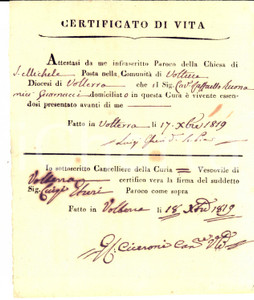 CERTIFICATO DI VITA
Attestasi da me infrascritto Paroco della Chiesa di
S. Michele Posta nella Comunità di Volterra
Diocesi di Volterra che il Sig. Cav. Raffaello
Guarnacci domiciliato in questa Cura è vivente essen-
dosi presentato avanti di me
Fatto in Volterra li 17 Xbre 1819
Luigi
Io sottoscritto Cancelliere della Curia Vescovile di
Volterra certifico vera la firma del suddetto
Sig. Luigi Paroco come sopra
Fatto in Volterra li 18 Xbre 1819
Ciceroni Canc. Vesc.